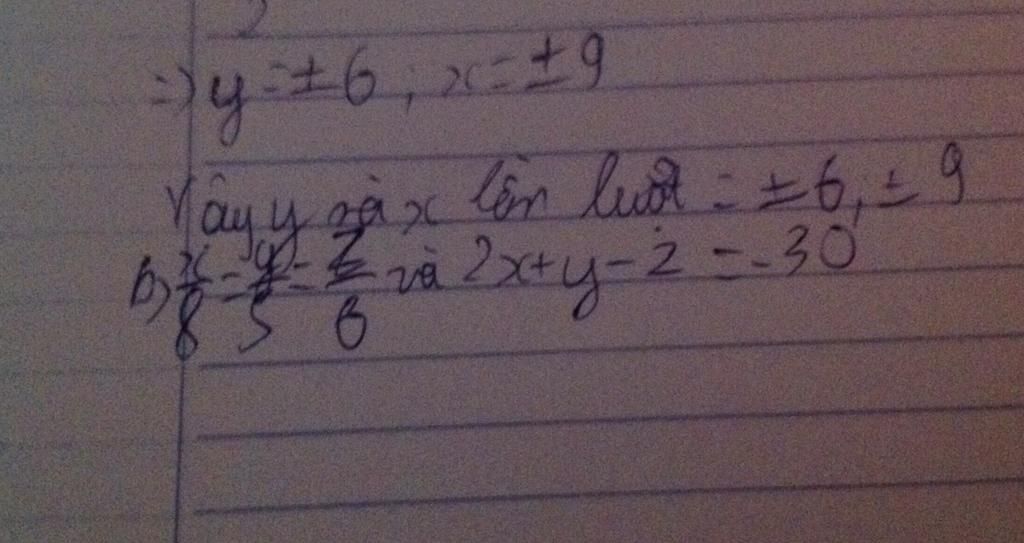 2
=> y = ± 6 ; x = ± 9
Vậy y và x lần lượt = ± 6, ± 9
b) x/8 = y/5 = z/6 và 2x + y - z = -30